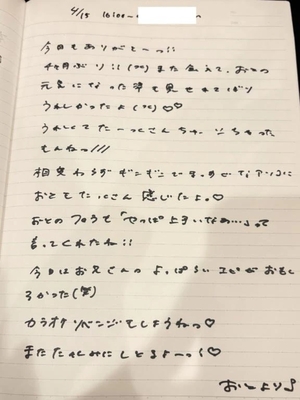 4/15 16:00-
今日もありがとーっ!!
ヶ月ぶり!! また会えて、おとの
元気になった姿も見せれてばり
うれしかったよ♡♡
うれしくて たーっくさんちゅーしちゃった
もんねっ///
相変わらず
おとでたっくさん感じたよ。♡
おとのフェラも「やっぱ上手いなぁ…」って
言ってくれたね!!
今日はお兄さんのよっぱらいエピがおもし
ろかった(笑)
カラオケリベンジもしようねっ♡
またたのしみにしとるよーっ♡
おとより